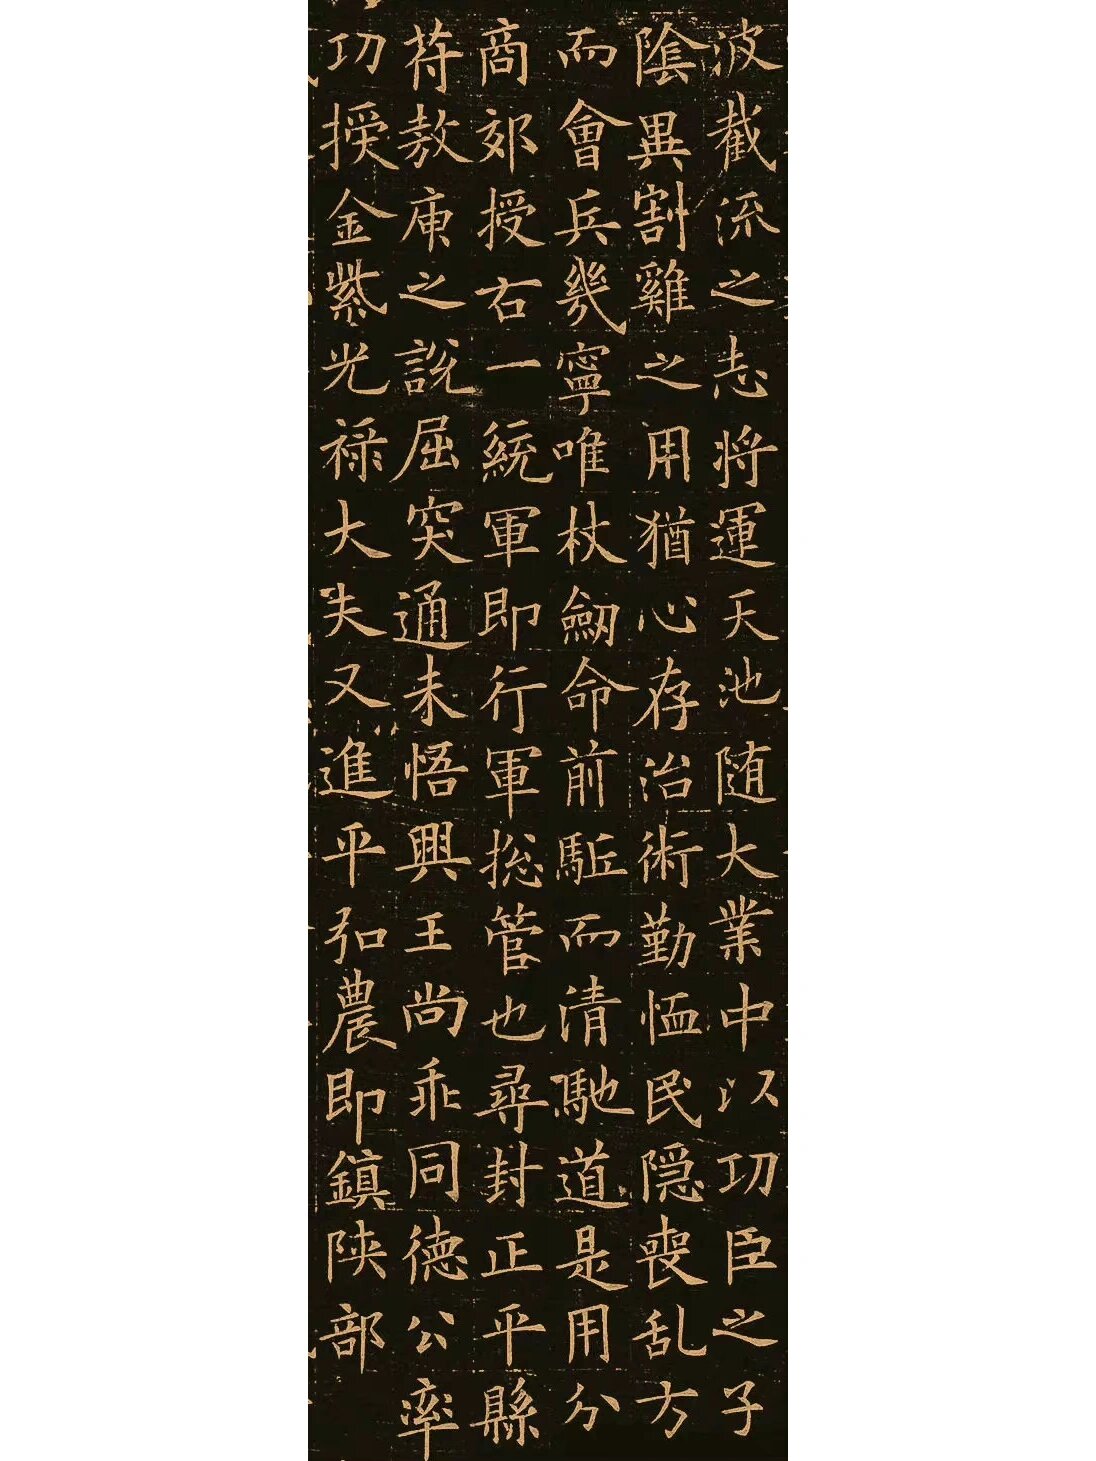 波截流之志将運天池随大業中以功臣之子
陰異割雞之用猶心存治術勤恤民隠喪乱方
而會兵幾寧唯杖劒命前駈而清馳道是用分
商郊授右一統軍即行軍捴管也尋封正平縣
荐敖庾之説屈突通未悟興王尚乖同德公率
功授金紫光禄大夫又進平弘農即鎮陝部